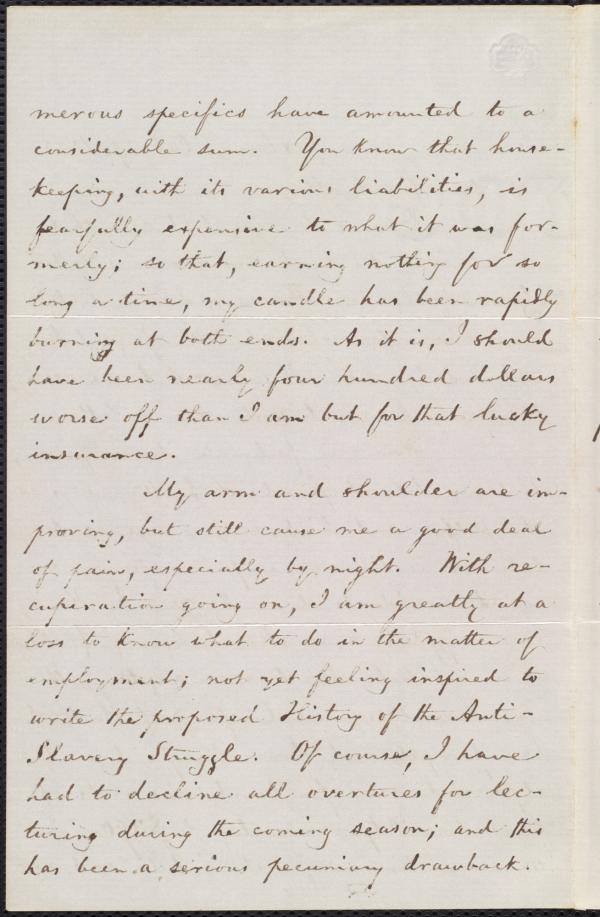 merous specifics have amounted to a
considerable sum. You know that house-
keeping, with its various liabilities, is
fearfully expensive to what it was for-
merly; so that, earning nothing for so
long a time, my candle has been rapidly
burning at both ends. As it is, I should
have been nearly four hundred dollars
worse off than I am but for that lucky
insurance.
My arm and shoulder are im-
proving, but still cause me a good deal
of pain, especially by night. With re-
cuperation going on, I am greatly at a
loss to know what to do in the matter of
employment; not yet feeling inspired to
write the proposed History of the Anti-
Slavery Struggle. Of course, I have
had to decline all overtures for lec-
turing during the coming season; and this
has been a serious pecuniary drawback.